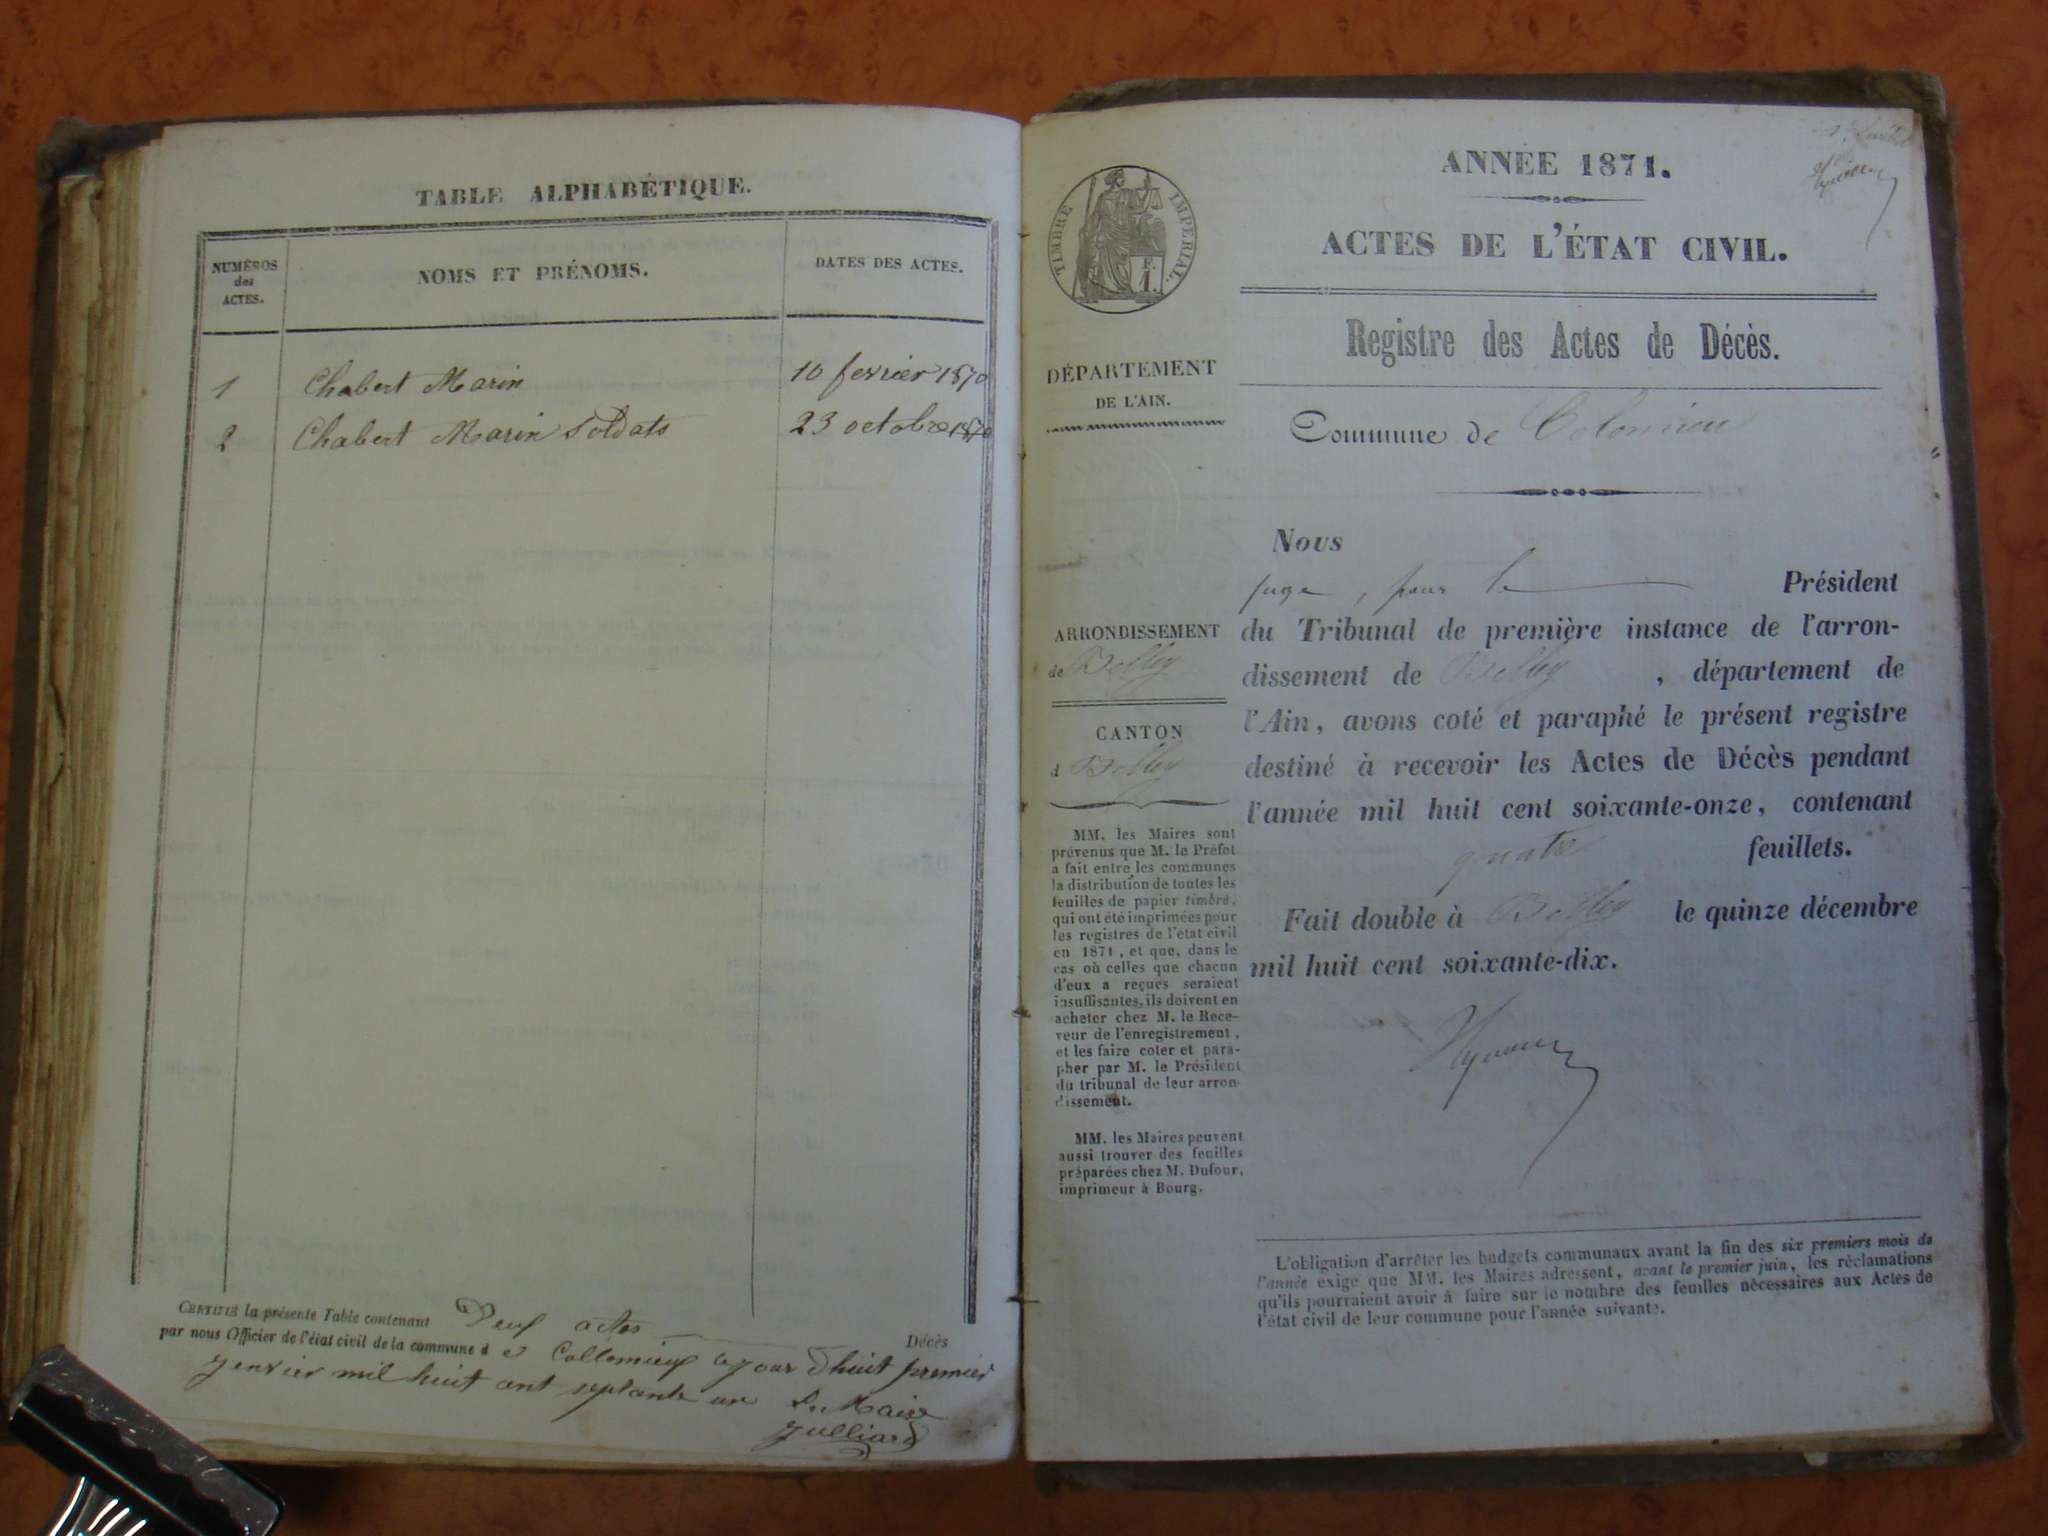 TABLE ALPHABÉTIQUE.
NUMÉROS
des
ACTES.
NOMS ET PRÉNOMS.
DATES DES ACTES.
1 Chabert Marin 10 fevrier 1870
2 Chabert Marin Soldats 23 octobre 1870
CERTIFIÉ la présente Table contenant Deux actes Décès
par nous Officier de l'état civil de la commune d e Collomieux ce jour dhuit premier
jenvier mil huit cent septante un Le Maire
Julliard
ANNÉE 1871.
ACTES DE L'ÉTAT CIVIL.
TIMBRE IMPERIAL.
F.
1.
Registre des Actes de Décès.
DÉPARTEMENT
DE L'AIN.
Commune de Colomieu
Nous
juge, pour le Président
du Tribunal de première instance de l'arron-
dissement de Belley, département de
l'Ain, avons coté et paraphé le présent registre
destiné à recevoir les Actes de Décès pendant
l'année mil huit cent soixante-onze, contenant
quatre feuillets.
Fait double à Belley le quinze décembre
mil huit cent soixante-dix.
ARRONDISSEMENT
de Belley
CANTON
d Belley
MM. les Maires sont
prévenus que M. le Préfet
a fait entre les communes
la distribution de toutes les
feuilles de papier timbré,
qui ont été imprimées pour
les registres de l'état civil
en 1871, et que, dans le
cas où celles que chacun
d'eux a reçues seraient
insuffisantes, ils doivent en
acheter chez M. le Rece-
veur de l'enregistrement,
et les faire coter et para-
pher par M. le Président
du tribunal de leur arron-
dissement.
MM. les Maires peuvent
aussi trouver des feuilles
préparées chez M. Dufour,
imprimeur à Bourg.
L'obligation d'arrêter les budgets communaux avant la fin des six premiers mois de
l'année exige que MM. les Maires adressent, avant le premier juin, les réclamations
qu'ils pourraient avoir à faire sur le nombre des feuilles nécessaires aux Actes de
l'état civil de leur commune pour l'année suivante.